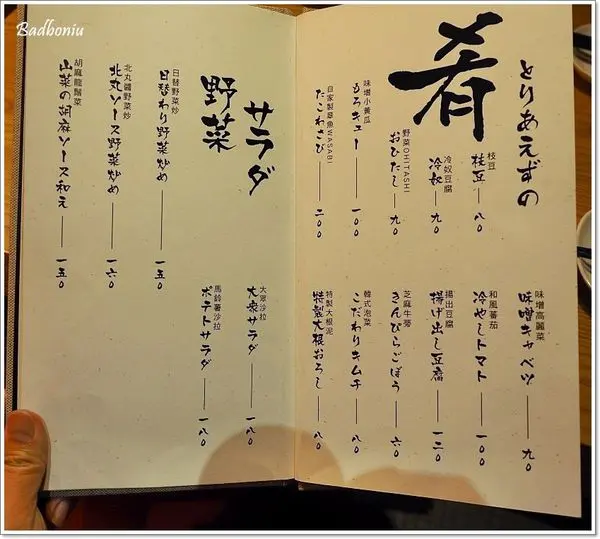 Badboniu
とりあえずの
肴
枝豆
枝豆 八〇
冷奴豆腐
冷奴 九〇
野菜OHITASHI
おひたし 九〇
味增小黃瓜
もろキュー 一〇〇
自家製章魚WASABI
たこわさび 二〇〇
味增高麗菜
味噌キャベツ 九〇
和風蕃茄
冷やしトマト 一〇〇
揚出豆腐
揚げ出し豆腐 一二〇
芝麻牛蒡
きんぴらごぼう 六〇
韓式泡菜
こだわりキムチ 八〇
特製大根泥
特製大根おろし 八〇
サラダ
野菜
日替野菜炒
日替わり野菜炒め 一五〇
北丸醬野菜炒
北丸ソース野菜炒め 一六〇
胡麻龍鬚菜
山菜の胡麻ソース和え 一五〇
大眾沙拉
大衆サラダ 一八〇
馬鈴薯沙拉
ポテトサラダ 一八〇